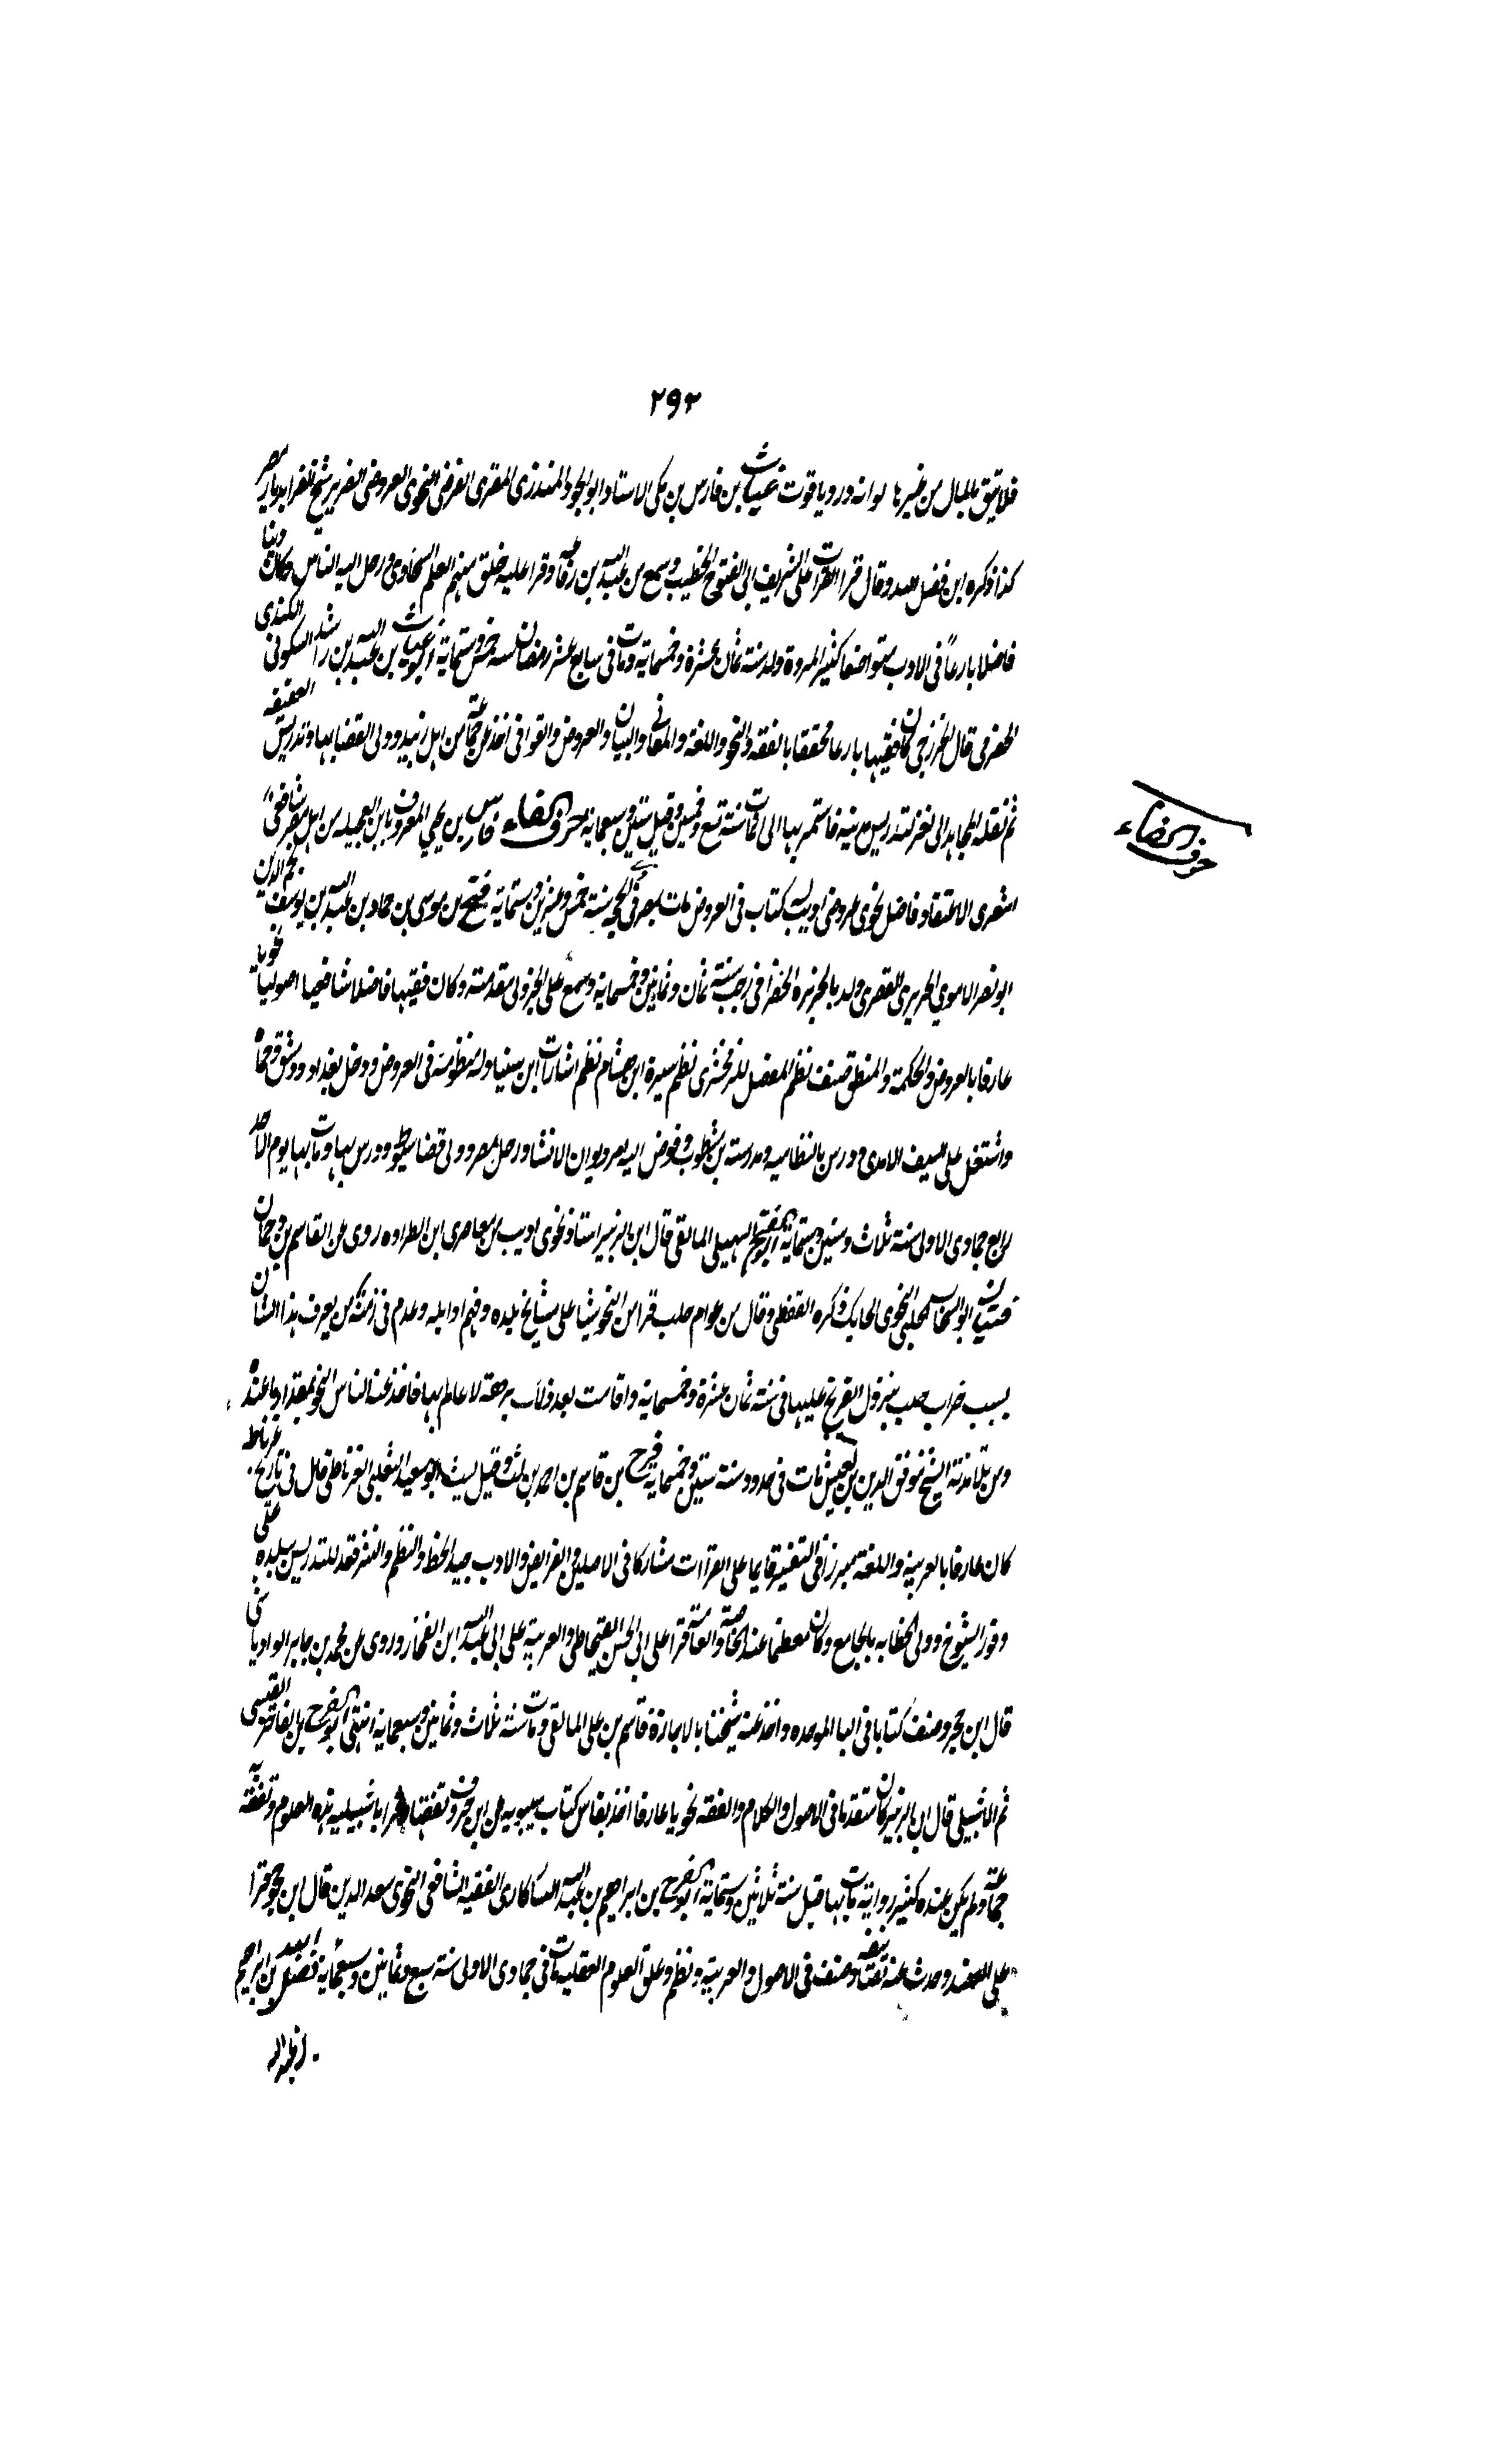 ٢٩٢
فلا تثق بالمال من غيرها لو انه در وياقوت غياث بن فارس بن مكي الاستاذ ابو الجود المنذري المقرى الفرضي النحوي العروضي الضرير شيخ القراء بديار مصر
كذا ذكره ابن فضل الله وقال قرا القرات على الشريف ابي الفتوح الخطيب وسمع من عبد الله بن رفاعة وقرا عليه خلق منهم العلم السخاوى ورحل اليه الناس وكان دينا
فاضلا بارعاً في الادب متواضعا كثير المروة ولد سنة ثمان عشرة وخمسماية ومات في سابع عشر رمضان سنه خمس وستماية ابو غياث بن عبد الله بن راشد السكوني الكندى
الحضرمي قال الخزرجي كان فقيها بارعا محققا بالفقه والنحو واللغة والمعاني والبيان والعروض والقوافي اخذ عن جماعة من اهل زبيد وولى القضا بها وتدريس العفيفه
ثم نقله المجاهد الى تعز لتدريس مدرسته فاستمر بها الى ان مات سنة تسع وخمسين وقيل ستين وسبعماية حرف الفاء فارس بن يحيي المعروف بابن العجيله من اهل مصر شافعي
حرف الفاء
اشعرى الاعتقاد فاضل نحوى عروضي اديب له كتاب في العروض مات بمصر في ذي الحجة سنة خمس وعشرين وستماية فتح بن موسى بن حماد بن عبد الله بن يوسف نجم الدين
ابو نصر الاموي الجزيرى القصرى ولد بالجزيره الخضرا في رجب سنة ثمان وثمانين وخمسماية وسمع على الجزولى مقدمته وكان فقيها فاضلا شافعيا اصوليا نحويا
عارفا بالعروض والحكمة والمنطق صنف نظم المفصل للزمخشرى نظم سيرة ابن هشام نظم اشارات ابن سينا وله منظومة في العروض ودخل بغداد ودمشق وحماة
واشتغل على السيف الامدى ودرس بالنظاميه ومدرسته بن مشطوب وفوض اليه امر ديوان الانشا ورحل مصر وولى قضا سيوط ودرس بها ومات بها يوم الاحد
رابع جمادى الاولى سنة ثلاث وستين وستماية ابو الفتح السهيلى المالقى قال ابن الزبير استاذ نحوى اديب من معاصرى ابن الطراوه روى عن القاسم بن دحمان
فتيان ابو السخا الحلبي النحوى الحايك ذكره القفطي وقال من عوام حلب قرا من النحو شيا على مشايخ بلده وفهم اوايله وعدم في زمنه من يعرف هذا الشان
بسبب خراب حلب بنزول الفرنج عليها في سنة ثمان عشرة وخمسماية واقامت بعد ذلك برهة لا عالم بها فاخذ عنه الناس النحو بمقدار ما عنده
ومن تلامذته الشيخ موفق الدين بن يعيش مات في حدود سنة ستين وخمسماية فرج بن قاسم بن احمد بن لب وقيل ليث ابو سعيد الثعلبى الغرناطي قال في تاريخ غرناطه
كان عارفا بالعربية واللغة مبرزا في التفسير قايما على القراات مشاركا في الاصلين والفرايض والادب جيد الخط والنظم والنثر قعد للتدريس ببلده على
وفور الشيوخ وولى الخطابه بالجامع وكان معظما عند الخاصة والعامة قرا على ابى الحسن القيجاطى والعربية على ابي عبد الله ابن الفخار وروى عن محمد بن جابر الوادياشى
قال ابن حجر وصنف كتابا في البا الموحده واخذ عنه شيخنا بالاجازة قاسم بن على المالقى ومات سنة ثلاث وثمانين وسبعماية انتهى ابو الفرج بن الفاخر القيسى
ثم الاشبيلى قال ابن الزبير كان متقدما في الاصول والكلام والفقه نحويا عارفا اخذ بفاس كتاب سيبويه عن ابن خروف تفقها واقرا باشبيليه هذه العلوم وتفقه به
جماعة ولم يكن عنده كثير رواية مات بها قبل سنة ثلاثين وستماية ابو الفرج بن ابراهيم بن عبد الله السكاكرى الفقيه الشافعى النحوى سعد الدين قال ابن حجر قرا
على الصفد وحدث عنه وصنف في الاصول والعربية ونظم وعلق العلوم العقلية مات في جمادى الاولى سنة سبع وثمانين وسبعماية فضل بن ابراهيم